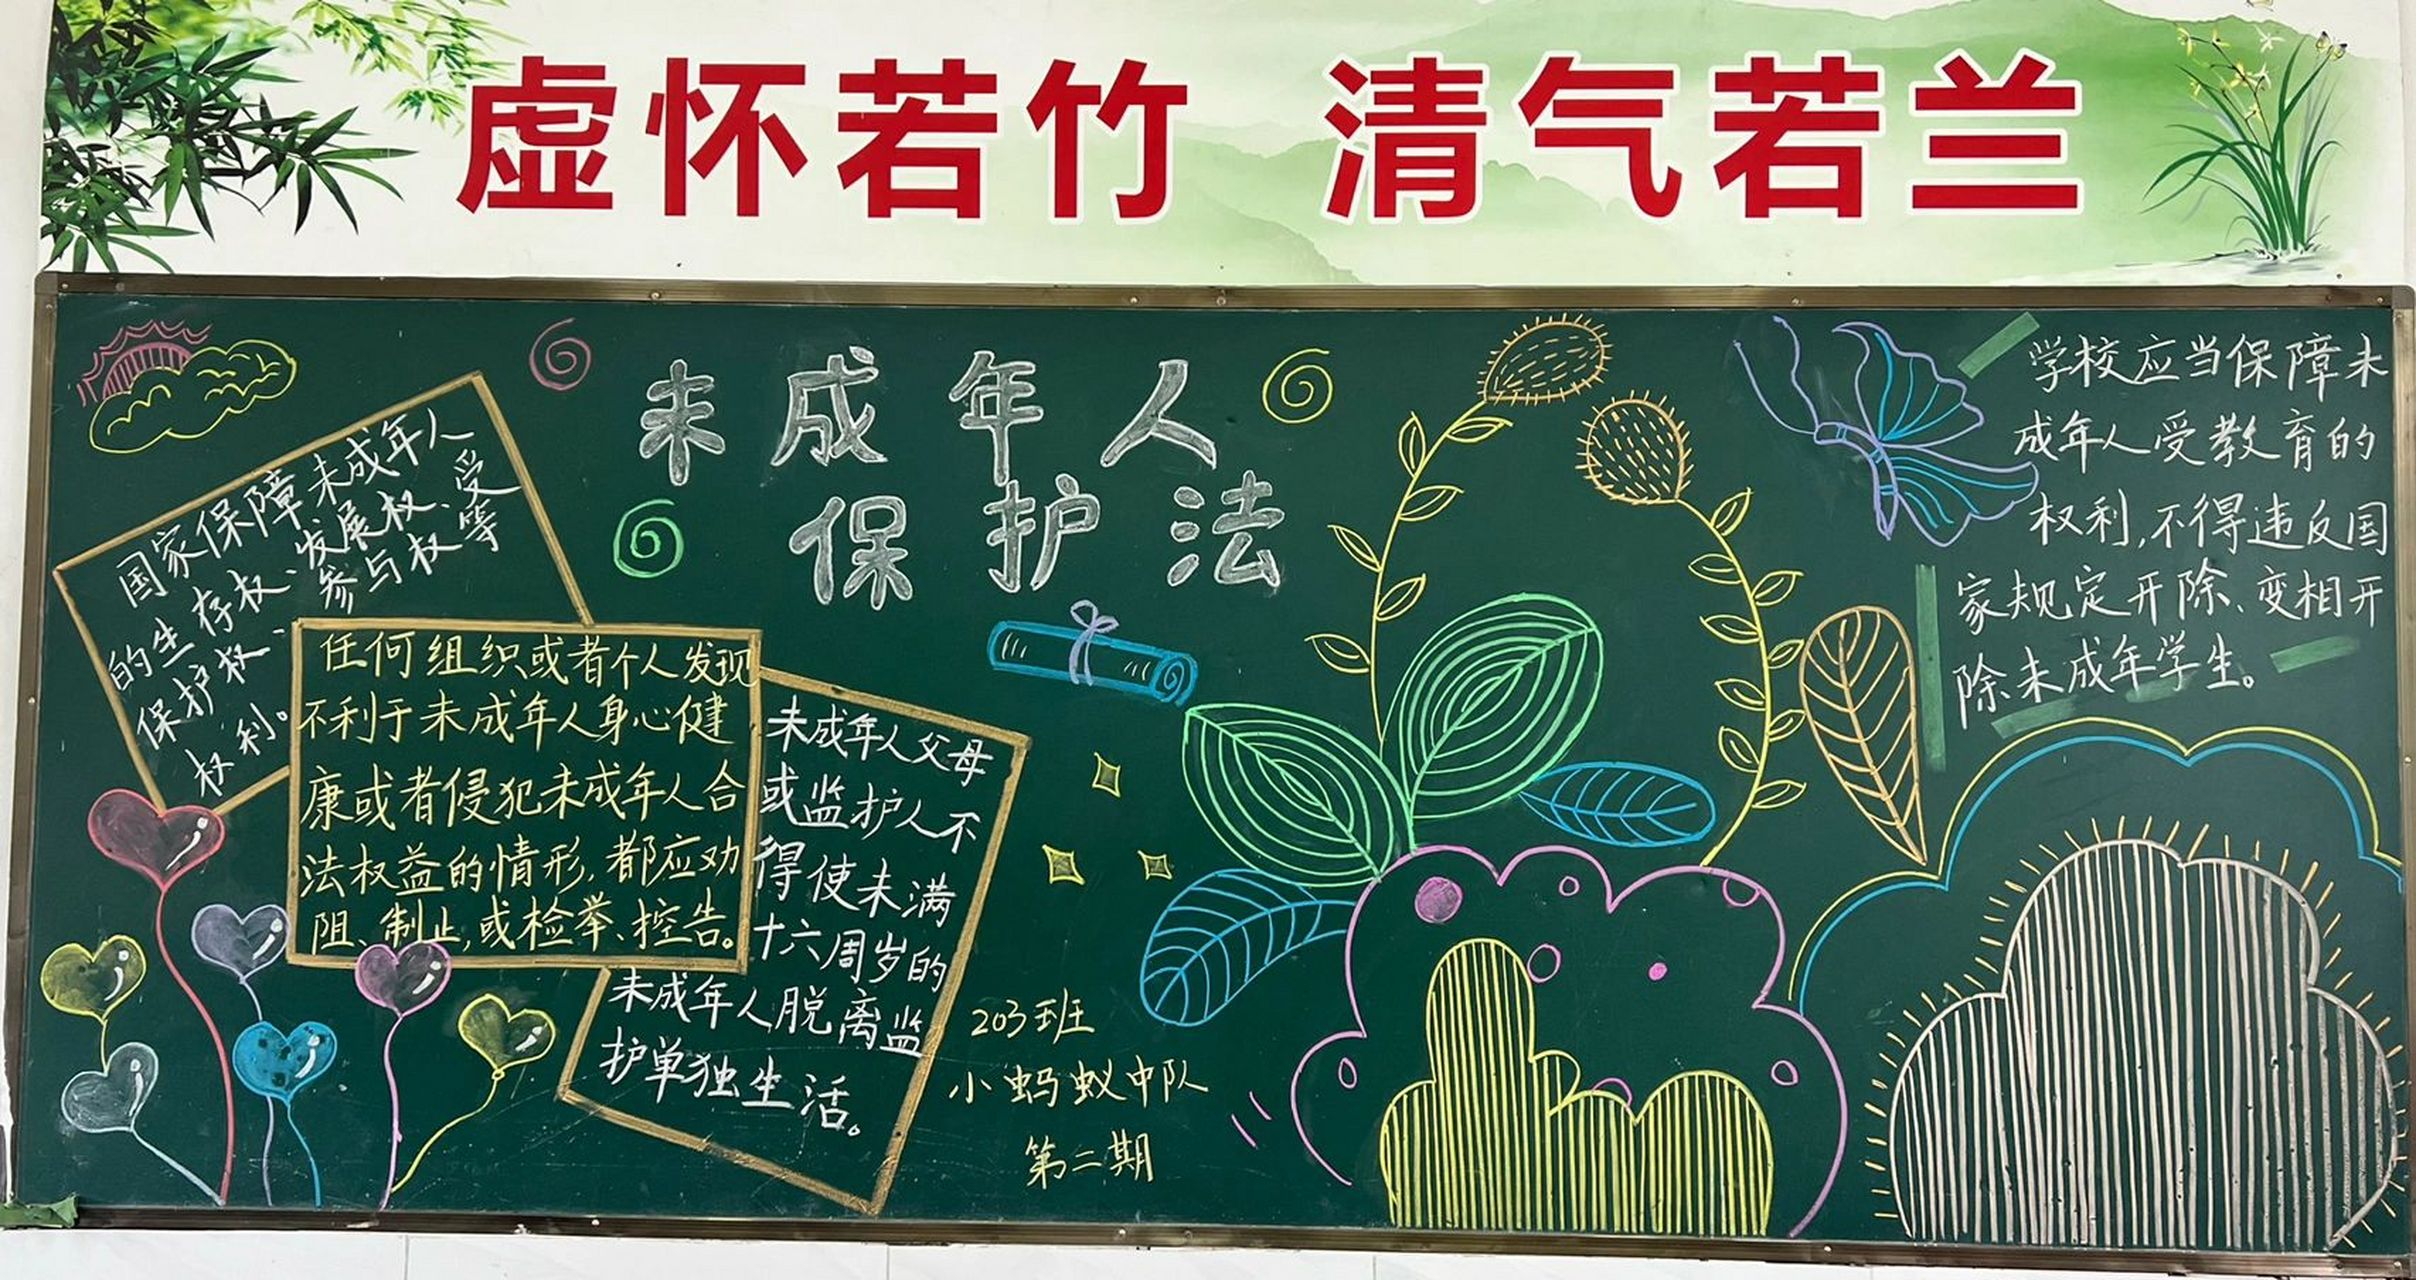 虚怀若竹 清气若兰
未成年人
保护法
国家保障未成年人
的生存权、发展权、受
保护权、参与权等
权利。
任何组织或者个人发现
不利于未成年人身心健
康或者侵犯未成年人合
法权益的情形,都应劝
阻、制止,或检举、控告。
未成年人父母
或监护人不
得使未满
十六周岁的
未成年人脱离监
护单独生活。
203班
小蚂蚁中队
第二期
学校应当保障未
成年人受教育的
权利,不得违反国
家规定开除、变相开
除未成年学生。